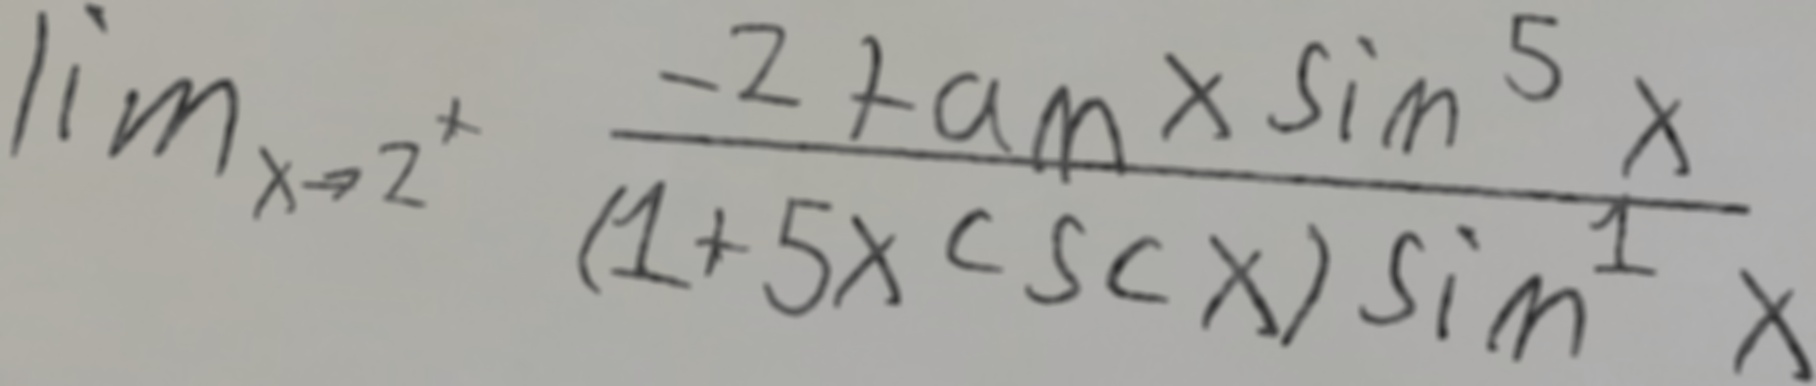 \lim_{x \to 2^+} \frac{-2 \tan x \sin^5 x}{(1+5x \csc x) \sin^1 x}